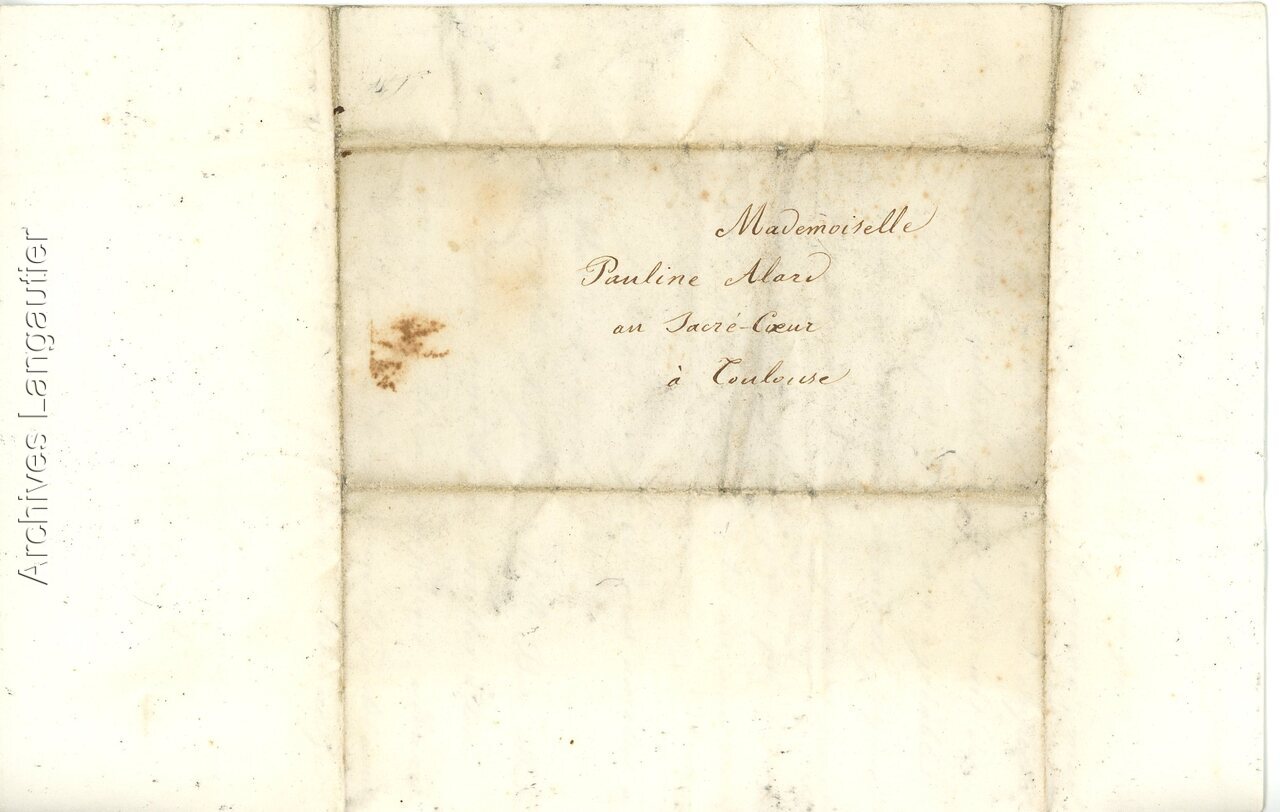 Mademoiselle
Pauline Alard
au Sacré-Cœur
à Toulouse
Archives Langautier